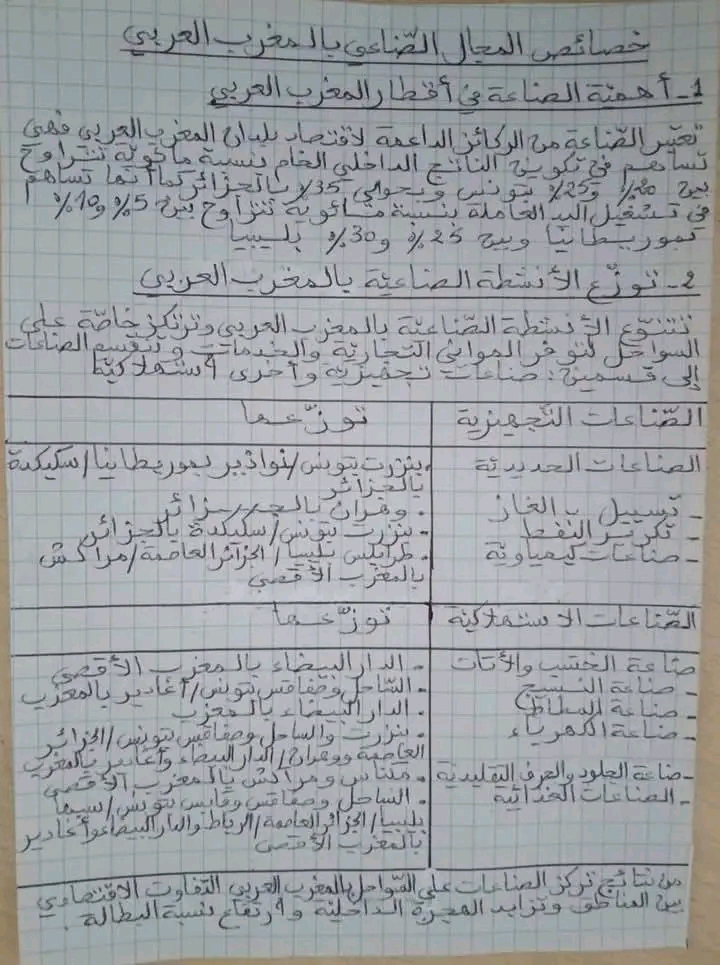 خصائص المجال الصّناعي بالمغرب العربي
1- أهميّة الصناعة في أقطار المغرب العربي
تعتبر الصّناعة من الركائز الداعمة لاقتصاد بلدان المغرب العربي فهي
تساهم في تكوين الناتج الداخلي الخام بنسبة مائويّة تتراوح
بين 20٪ و25٪ بتونس وبحوالي 35٪ بالجزائر كما أنها تساهم
في تشغيل اليد العاملة بنسبة مائوية تتراوح بين 5٪ و10٪
بموريطانيا وبين 25٪ و30٪ بليبيا
2- توزّع الأنشطة الصناعيّة بالمغرب العربي
تتنوّع الأنشطة الصّناعيّة بالمغرب العربي وتتركز خاصّة على
السواحل لتوفر الموانئ التجاريّة والخدمات وتنقسم الصناعات
إلى قسمين: صناعات تجهيزيّة وأخرى استهلاكيّة
الصّناعات التّجهيزية
توزّعها
الصناعات الحديديّة
- تسييل بـالغاز
- تكرير النفط
- صناعات كيمياويّة
• بنزرت بتونس/نواذيبو بموريطانيا/سكيكدة
بالجزائر
• وهران بالجزائر
• بنزرت بتونس/سكيكدة بالجزائر
• طرابلس بليبيا/الجزائر العاصمة/مراكش
بالمغرب الأقصى
الصّناعات الاستهلاكية
توزّعها
صناعة الخشب والأثاث
- صناعة النسيج
- صناعة المطاط
- صناعة الكهرباء
- صناعة الجلود والحرف التقليديّة
- الصناعات الغذائية
• الدار البيضاء بالمغرب الأقصى
• السّاحل وصفاقس بتونس/أغادير بالمغرب
• الدار البيضاء بالمغرب
• بنزرت والساحل وصفاقس بتونس/الجزائر
العاصمة ووهران/الدار البيضاء وأغادير بالمغرب
• مكناس ومراكش بالمغرب الأقصى
• الساحل وصفاقس وقابس بتونس/سبها
بليبيا/الجزائر العاصمة/الرباط والدار البيضاء وأغادير
بالمغرب الأقصى
من نتائج تركز الصناعات على السّواحل بالمغرب العربي التفاوت الاقتصادي
بين المناطق وتزايد الهجرة الداخلية وارتفاع نسبة البطالة.